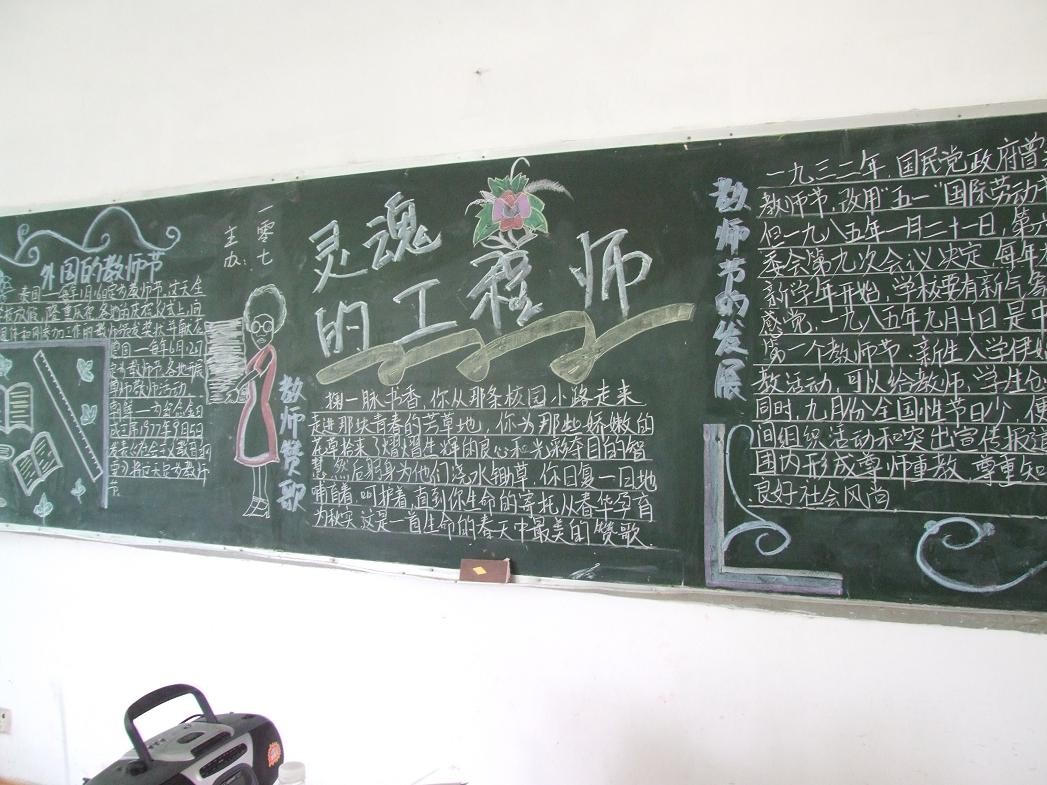 外国的教师节
泰国一每年1月16日定为教师节,这天全
德国一每年6月12日
定为教师节,各地开展
尊师敬师活动。
1977年9月5日
节
一零七
主办:
灵魂
的工程师
教师赞歌
掬一脉书香,你从那条校园小路走来
走进那块青春的芳草地,你为那些娇嫩的
花草拾来了熠熠生辉的良心和光彩夺目的智
慧,然后躬身为他们浇水锄草,你日复一日地
哺育着,呵护着,直到你生命的寄托从春华孕育
为秋实,这是一首生命的春天中最美的赞歌.
教师节的发展
一九三二年,国民党政府曾
教师节,改用“五一”国际劳动节
但一九八五年一月二十一日,第六
委会第九次会议决定,每年
新学年开始,学校要有新气象
感觉,一九八五年九月十日是中
第一个教师节,新生入学伊始
教活动,可以给教师、学生创
同时,九月份全国性节日少,便
间组织活动和突出宣传报道
国内形成尊师重教、尊重知
良好社会风尚